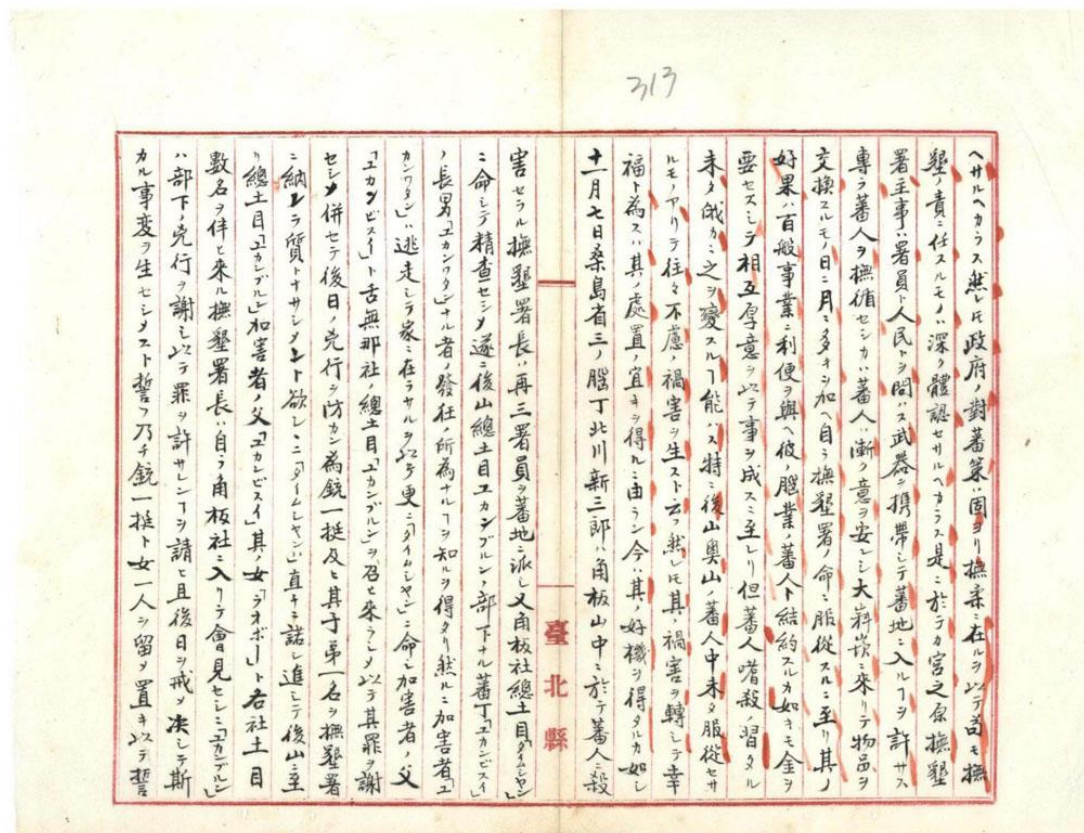 313
ヘサルヘカラス然レトモ政府ノ對蕃策ハ固ヨリ撫柔ニ在ルヲ以テ苟モ撫
墾ノ責ニ任スルモノハ深ク體認セサルヘカラス是ニ於テカ宮之原撫墾
署主事ハ署員ト人民トヲ問ハス武器ヲ携帶シテ蕃地ニ入ルヿヲ許サス
專ラ蕃人ヲ撫循セシカハ蕃人ハ漸ク意ヲ安シ大嵙崁ニ來リテ物品ヲ
交換スルモノ日ニ月ニ多キヲ加ヘ自ラ撫墾署ノ命ニ服從スルニ至リ其ノ
好果ハ百般事業ニ利便ヲ與ヘ彼ノ腦業ノ蕃人ト結約スルカ如キモ金ヲ
要セスシテ相互厚意ヲ以テ事ヲ成スニ至レリ但蕃人嗜殺ノ習タル
未タ俄カニ之ヲ變スルヿ能ハス特ニ後山奧山ノ蕃人中未タ服從セサ
ルモノアリテ往々不慮ノ禍害ヲ生スト云フ然レトモ其ノ禍害ヲ轉シテ幸
福ト為スハ其ノ處置ノ宜キヲ得ルニ由ラン今ハ其ノ好機ヲ得タルカ如シ
十一月七日桑島省三ノ腦丁北川新三郎ハ角板山中ニ於テ蕃人ニ殺
臺北縣
害セラル撫墾署長ハ再三署員ヲ蕃地ニ派シ又角板社總土目「タイムシヤン」
ニ命シテ精查セシメ遂ニ後山總土目ユカンブルンノ部下ナル蕃丁「ユカンビスイ」
ノ長男「ユカンワタン」ナル者ノ發狂ノ所為ナルヿヲ知ルヲ得タリ然ルニ加害者「ユ
カンワタン」ハ逃走シテ家ニ在ラサルヲ以テ更ニ「タイムシヤン」ニ命シ加害者ノ父
「ユカンビスイ」ト舌無那社ノ總土目「ユカンブルン」ヲ召ヒ來ラシメ以テ其罪ヲ謝
セシメ併セテ後日ノ兇行ヲ防カン為銃一挺及ヒ其子弟一名ヲ撫墾署
ニ納レテ質トナサシメント欲シ「タイムシヤン」ハ直チニ諾シ進ンテ後山ニ至
リ總土目「ユカンブルン」加害者ノ父「ユカンビスイ」其ノ女「ラオボー」ト各社土目
數名ヲ伴ヒ來ル撫墾署長ハ自ラ角板社ニ入リテ會見セシニ「ユカンブルン」
ハ部下ノ兇行ヲ謝シ以テ罪ヲ許サレンヿヲ請ヒ且後日ヲ戒メ决シテ斯
カル事変ヲ生セシメスト誓フ乃チ銃一挺ト女一人ヲ留メ置キ以テ誓